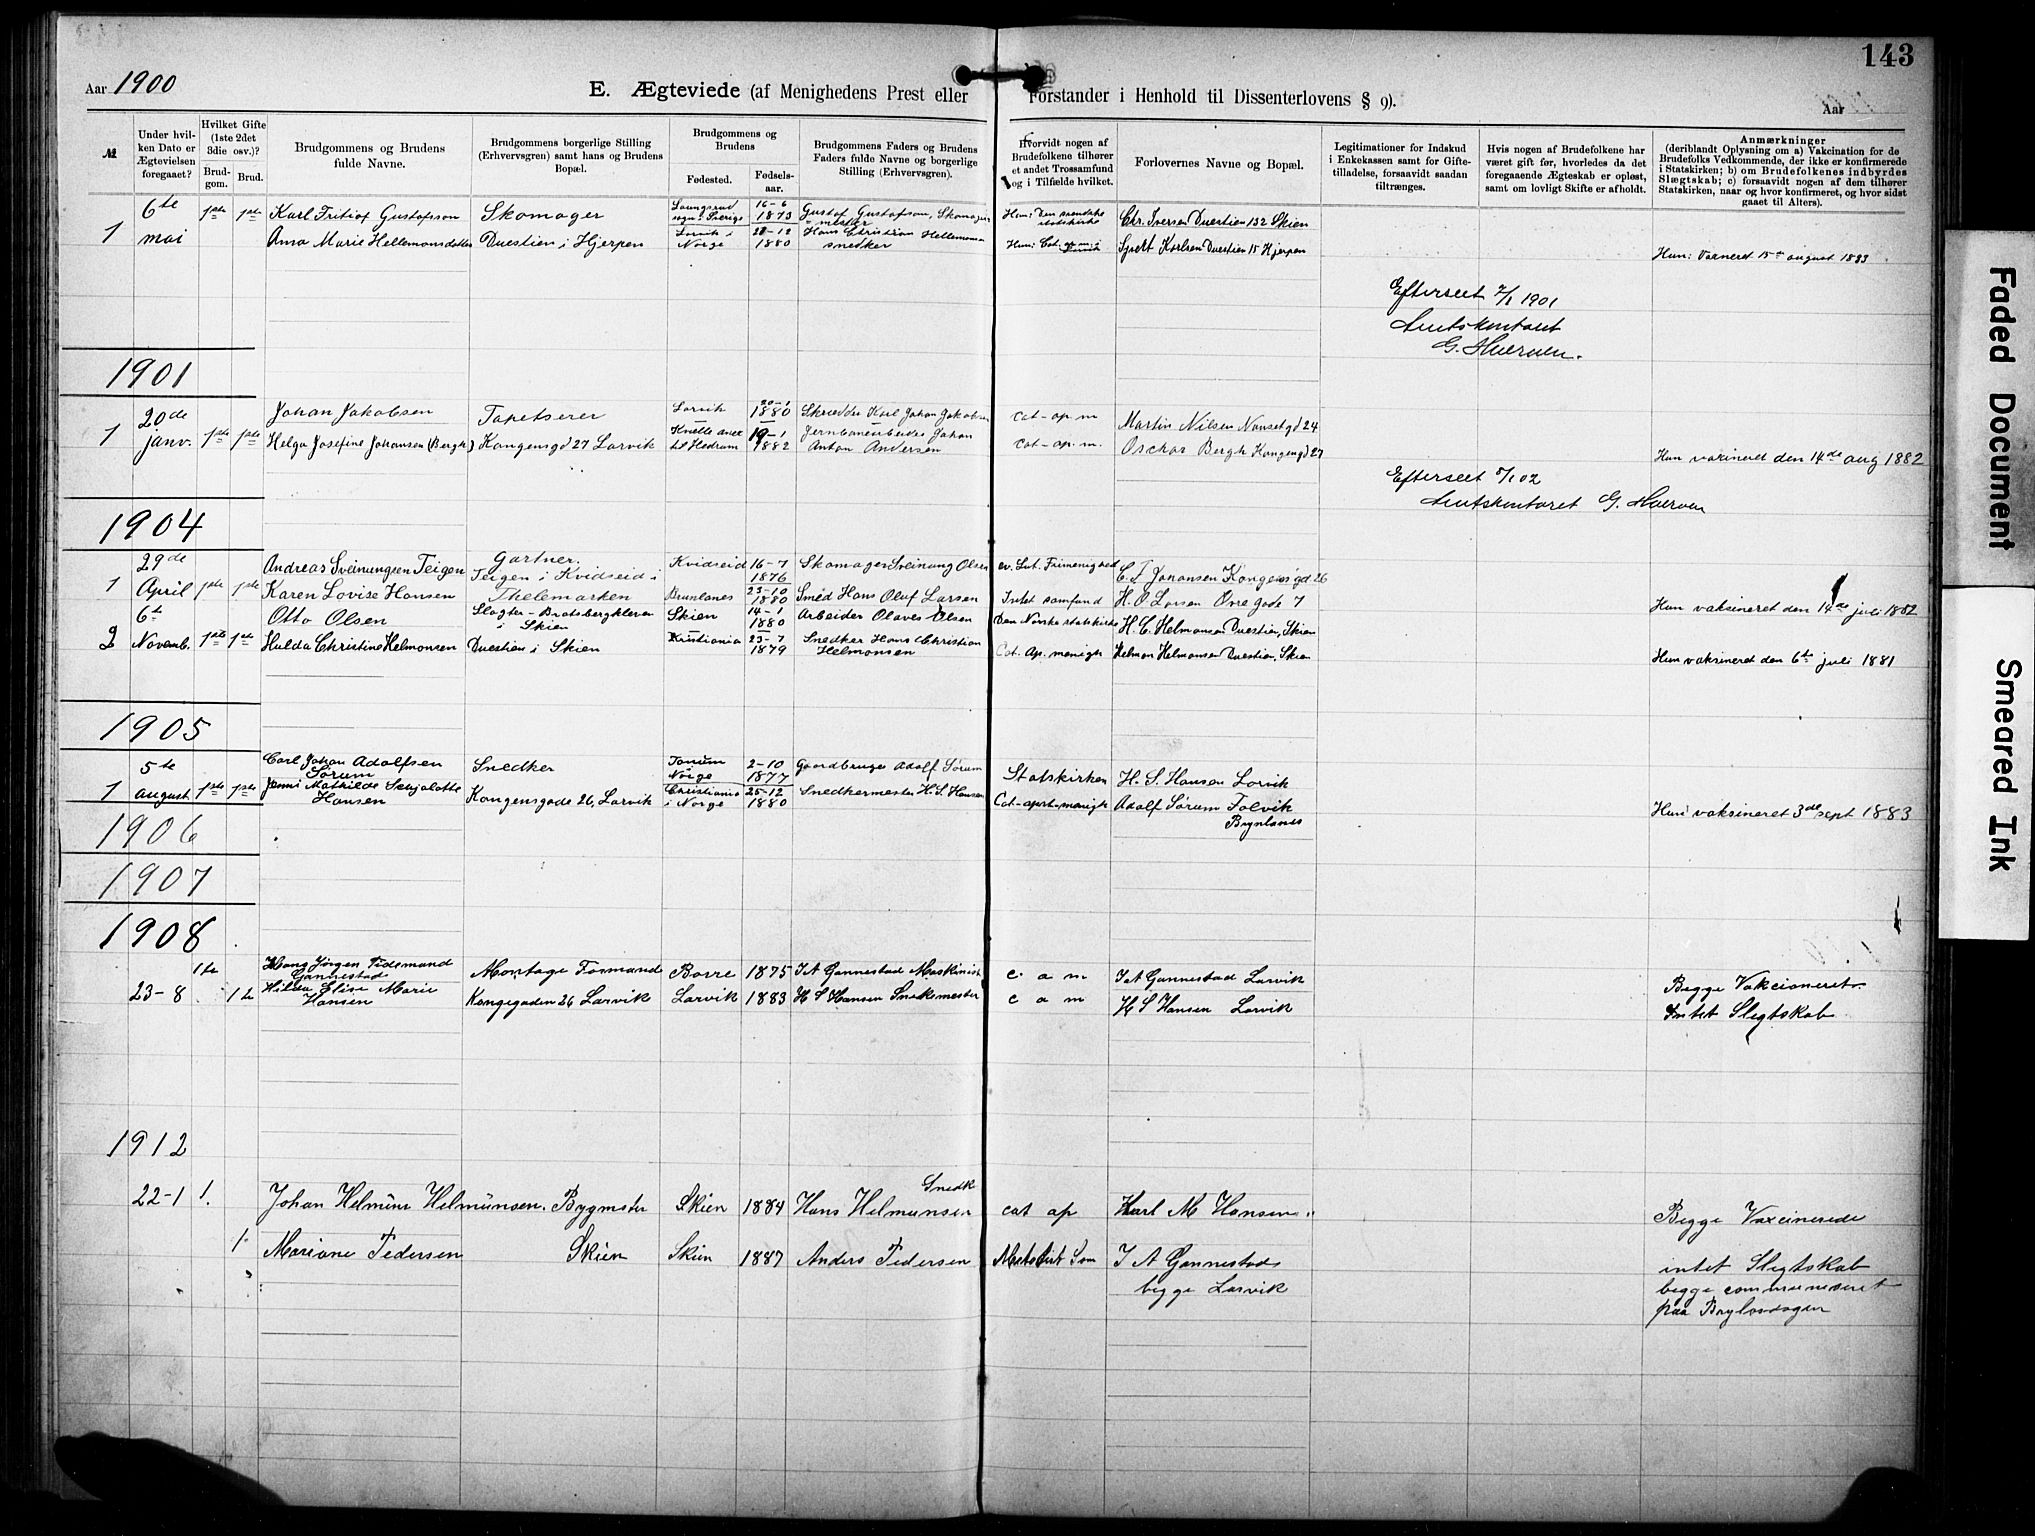 143
Aar 1900
E. Ægteviede (af Menighedens Prest eller Forstander i Henhold til Dissenterlovens § 9).
Aar
№
Under hvil-
ken Dato er
Ægtevielsen
foregaaet?
Hvilket Gifte
(1ste 2det
3die osv.)?
Brud-
gom.
Brud.
Brudgommens og Brudens
fulde Navne.
Brudgommens borgerlige Stilling
(Erhvervsgren) samt hans og Brudens
Bopæl.
Brudgommens og
Brudens
Fødested.
Fødsels-
aar.
Brudgommens Faders og Brudens
Faders fulde Navne og borgerlige
Stilling (Erhvervsgren).
Hvorvidt nogen af
Brudefolkene tilhører
et andet Trossamfund
og i Tilfælde hvilket.
Forlovernes Navne og Bopæl.
Legitimationer for Indskud
i Enkekassen samt for Gifte-
tilladelse, forsaavidt saadan
tiltrænges.
Hvis nogen af Brudefolkene har
været gift før, hvorledes da det
foregaaende Ægteskab er opløst,
samt om lovligt Skifte er afholdt.
Anmærkninger
(deriblandt Oplysning om a) Vakcination for de
Brudefolks Vedkommende, der ikke er konfirmerede
i Statskirken; b) om Brudefolkenes indbyrdes
Slægtskab; c) forsaavidt nogen af dem tilhører
Statskirken, naar og hvor konfirmeret, og hvor sidst
gaaet til Alters).
1 6te mai 1ste 1ste
Karl Fritiof Gustafsson Skomager sogn i Sverige 16-6 1873 Gustaf Gustafson, Skomager Han: Den svenske statskirke Chr. Iversen Duestien 132 Skien
Ama Marie Hellemonsdatter Duestien i Hjerpen Larvik i Norge 28-12 1880 Hans Christian Hellemonsen snedker Hun: Cat. ap. m. i Larvik Karlsen Duestien 15 Hjerpen
Hun: Vaxneret 15de august 1883
Efterseet 2/1 1901
Amtskontoret
1901
1 20de janv. 1ste 1ste
Johan Jakobsen Tapetserer Larvik 20-1 1880 Skrædder Karl Johan Jakobsen cat-ap. m Martin Nilsen Nansetgd 24
Helga Josefine Johansen (Bergh) Kongensgd 27 Larvik til Hedrum 19-1 1882 Jernbanearbeider Johan Anton Andersen cat-ap. m. Osckar Bergh Kongengd 27
Hun vaxineret den 14de aug 1882
Efterseet 8/1 02
Amtskontoret
1904
1 29de April 1ste 1ste
Andreas Sveinungsen Teigen Gartner. Teigen i Kvidseid i Thelemarken Kvidseid 16-7 1876 Skomager Sveinung Olsen ev. Lut. Frimenighed C. F Johansen Kongensgd 26
Karen Lovise Hansen Brunlanes 23-10 1880 Smed Hans Oluf Larsen Intet samfund H. O Larsen Øvregade 7
Hun vaksineret den 14de juli 1882
2 6te Novemb. 1ste 1ste
Otto Olsen Slagter - Bratsbergkleven i Skien Skien 14-1 1880 Arbeider Olaves Olsen Den Norske statskirke H. C. Helmonsen Duestien, Skien
Hulda Christine Helmonsen Duestien i Skien Kristiania 23-7 1879 Snedker Hans Christian Helmonsen Cat. Ap. menigh Helmon Helmonsen Duestien, Skien
Hun vaksineret den 6te juli 1881
1905
1 5te august 1ste 1ste
Carl Johan Adolfsen Sørum Snedker Norge 2-10 1877 Gaardbruger Adolf Sørum Statskirken H. S. Hansen Larvik
Jenni Mathilde Schjalotte Hansen Kongensgade 26, Larvik Christiania i Norge 25-12 1880 Snedkermester H. S. Hansen Cat-apost-menigh Adolf Sørum Tolvik Brynlanes
Hun vaksineret 3de sept 1883
1906
1907
1908
23-8 1te 1te
Hans Jørgen Tidemand Gannestad Montage Formand Borre 1875 I A Gannestad Maskinist c a m I A Gannestad Larvik
Hilda Elise Marie Hansen Kongegaden 26 Larvik Larvik 1883 H S Hansen Snekermester c a m H S Hansen Larvik
Begge Vakcioneret
Intet Slegtskab
1912
22-1 1.
Johan Helmüne Helmünsen. Bygmster Skien 1884 Hans Helmunsen Snedk cat ap Karl M Hansen
1 Mariane Pedersen Skien Skien 1887 Anders Pedersen Metodist Sam I A Gannestad
begge Larvik
Begge Vaxcinerede
intet Slegtskab
begge
paa Bryl
Faded Document
Smeared Ink